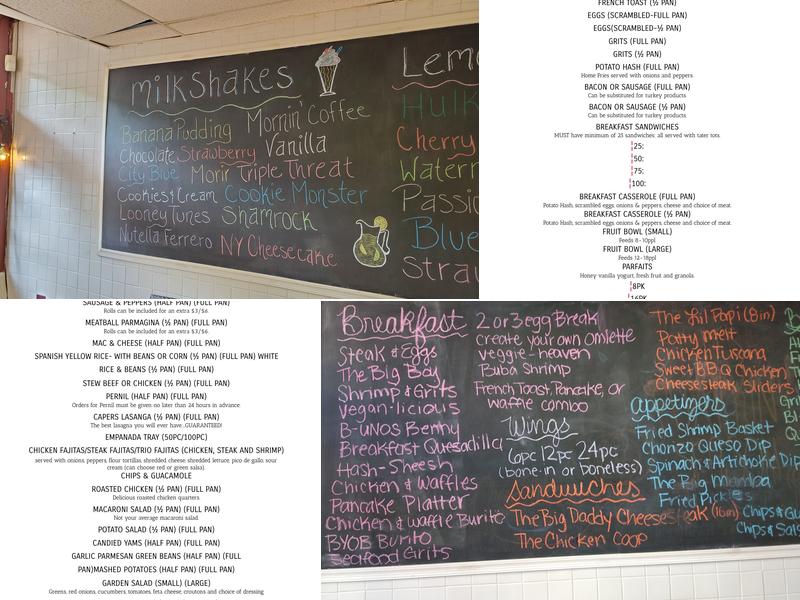 milkshakes
Banana Pudding Mornin' Coffee
Chocolate Strawberry Vanilla
City Blue Morir Triple Threat
Cookies & Cream Cookie Monster
Looney Tunes Shamrock
Nutella Ferrero NY Cheesecake
Lem
Hulk
Cherry
Waterm
Passio
Blue
Straw
FRENCH TOAST (½ PAN)
EGGS (SCRAMBLED-FULL PAN)
EGGS(SCRAMBLED-½ PAN)
GRITS (FULL PAN)
GRITS (½ PAN)
POTATO HASH (FULL PAN)
Home Fries served with onions and peppers.
BACON OR SAUSAGE (FULL PAN)
Can be substituted for turkey products
BACON OR SAUSAGE (½ PAN)
Can be substituted for turkey products
BREAKFAST SANDWICHES
MUST have minimum of 25 sandwiches: all served with tater tots.
25:
50:
75:
100:
BREAKFAST CASSEROLE (FULL PAN)
Potato Hash, scrambled eggs, onions & peppers, cheese and choice of meat.
BREAKFAST CASSEROLE (½ PAN)
Potato Hash, scrambled eggs onions & peppers, cheese and choice of meat.
FRUIT BOWL (SMALL)
Feeds 8-10ppl
FRUIT BOWL (LARGE)
Feeds 12-18ppl
PARFAITS
Honey vanilla yogurt, fresh fruit and granola.
8PK
16PK
SAUSAGE & PEPPERS (HALF PAN) (FULL PAN)
Rolls can be included for an extra $3/$6
MEATBALL PARMAGINA (½ PAN) (FULL PAN)
Rolls can be included for an extra $3/$6
MAC & CHEESE (HALF PAN) (FULL PAN)
SPANISH YELLOW RICE- WITH BEANS OR CORN (½ PAN) (FULL PAN) WHITE
RICE & BEANS (½ PAN) (FULL PAN)
STEW BEEF OR CHICKEN (½ PAN) (FULL PAN)
PERNIL (HALF PAN) (FULL PAN)
Orders for Pernil must be given no later than 24 hours in advance
CAPERS LASANGA (½ PAN) (FULL PAN)
The best lasagna you will ever have..GUARANTEED!
EMPANADA TRAY (50PC/100PC)
CHICKEN FAJITAS/STEAK FAJITAS/TRIO FAJITAS (CHICKEN, STEAK AND SHRIMP)
served with onions, peppers, flour tortillas, shredded cheese shredded lettuce, pico de gallo, sour
cream (can choose red or green salsa).
CHIPS & GUACAMOLE
ROASTED CHICKEN (½ PAN) (FULL PAN)
Delicious roasted chicken quarters.
MACARONI SALAD (½ PAN) (FULL PAN)
Not your average macaroni salad.
POTATO SALAD (½ PAN) (FULL PAN)
CANDIED YAMS (HALF PAN) (FULL PAN)
GARLIC PARMESAN GREEN BEANS (HALF PAN) (FULL
PAN)MASHED POTATOES (HALF PAN) (FULL PAN)
GARDEN SALAD (SMALL) (LARGE)
Greens, red onions, cucumbers, tomatoes, feta cheese, croutons and choice of dressing
Breakfast
Steak & Eggs
The Big Boy
Shrimp & Grits
vegan-licious
B-UNOS Benny
Breakfast Quesadilla
Hash-Sheesh
Chicken & Waffles
Pancake Platter
Chicken & Waffle Burito
BYOB Burito
Seafood Grits
2 or 3 egg Break
create your own omlette
veggie-heaven
Buba Shrimp
French Toast, Pancake, or
waffle combo
Wings
6pc 12pc 24pc
(bone-in or boneless)
Sandwiches
The Big Daddy Cheesesteak (16in)
The Chicken Coop
The Lil Papi (8in)
Patty melt
Chicken Tuscana
Sweet BBQ Chicken
Cheesesteak Sliders
appetizers
Fried Shrimp Basket
Chorizo Queso Dip
Spinach & Artichoke Dip
The Big mamba
Fried Pickles
Chips & Gu
Chips & Sals